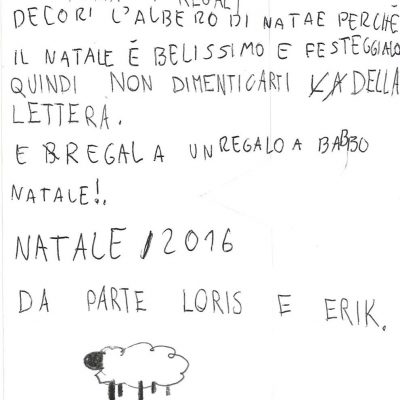 REGALI
DECORI L'ALBERO DI NATAE PERCHÉ
IL NATALE É BELISSIMO E FESTEGGIALO
QUINDI NON DIMENTICARTI LA DELLA
LETTERA.
E REGALA UN REGALO A BABBO
NATALE!.
NATALE/2016
DA PARTE LORIS E ERIK.